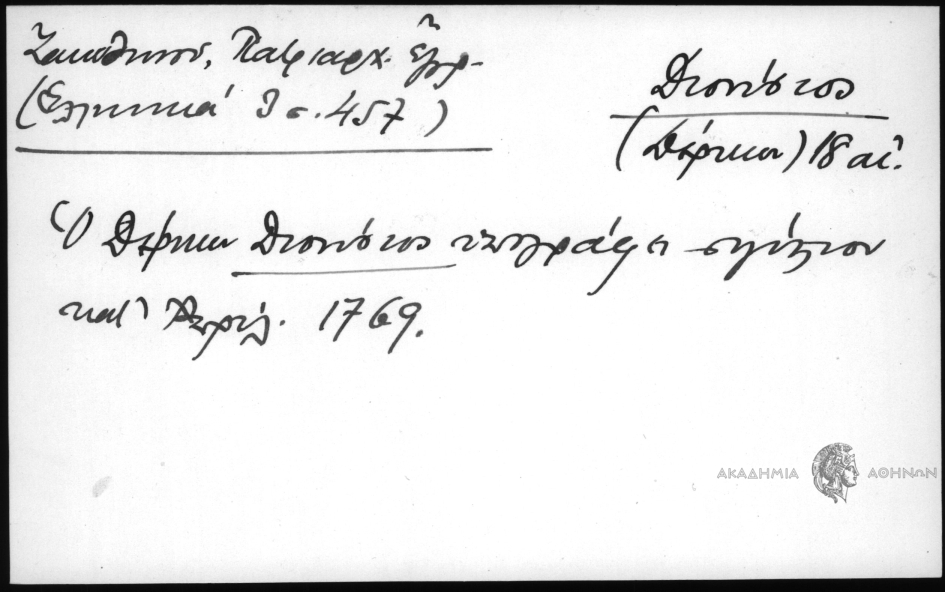 Ζακυθηνού, Πατριαρχ. Ἔγγρ.
(Ἑλληνικά 3 σ. 457)
Διονύσιος
(Δέρκων) 18 αἰ.
Ὁ Δέρκων Διονύσιος ὑπογράφει σιγίλλιον
κατ' Ἀπρίλ. 1769.
ΑΚΑΔΗΜΙΑ ΑΘΗΝΩΝ